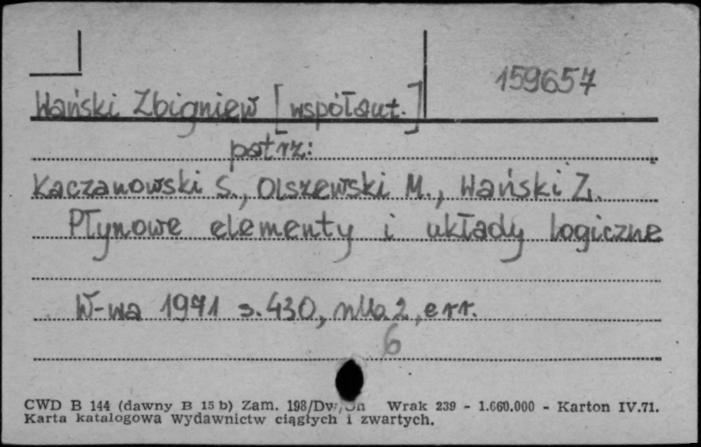 159657
Wański Zbigniew [współaut.]
patrz:
Kaczanowski S., Olszewski M., Wański Z.
Płynowe elementy i układy logiczne
W-wa 1971 s.430, nlb.2, err.
6
CWD B 144 (dawny B 15 b) Zam. 198/Dw Wrak 239 - 1.660.000 - Karton IV.71.
Karta katalogowa wydawnictw ciągłych i zwartych.